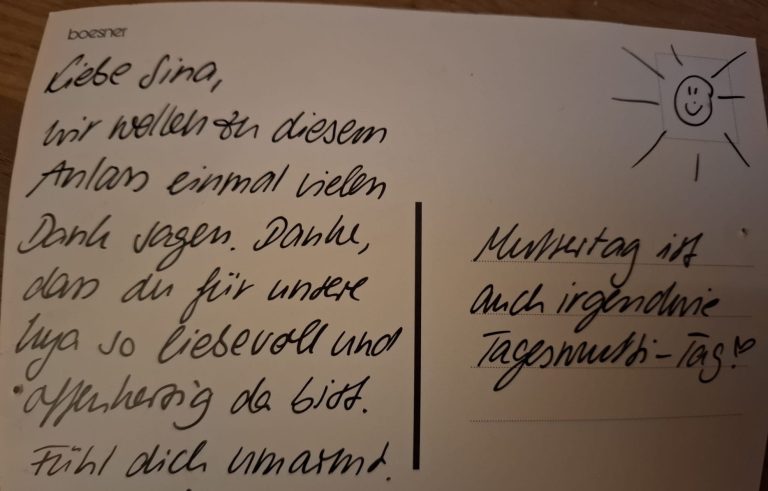 boesner
Liebe Sina,
wir wollen zu diesem
Anlass einmal vielen
Dank sagen. Danke,
dass du für unsere
so liebevoll und
offenherzig da bist.
Fühl dich umarmt.
Muttertag ist
auch irgendwie
Tagesmutti-Tag!